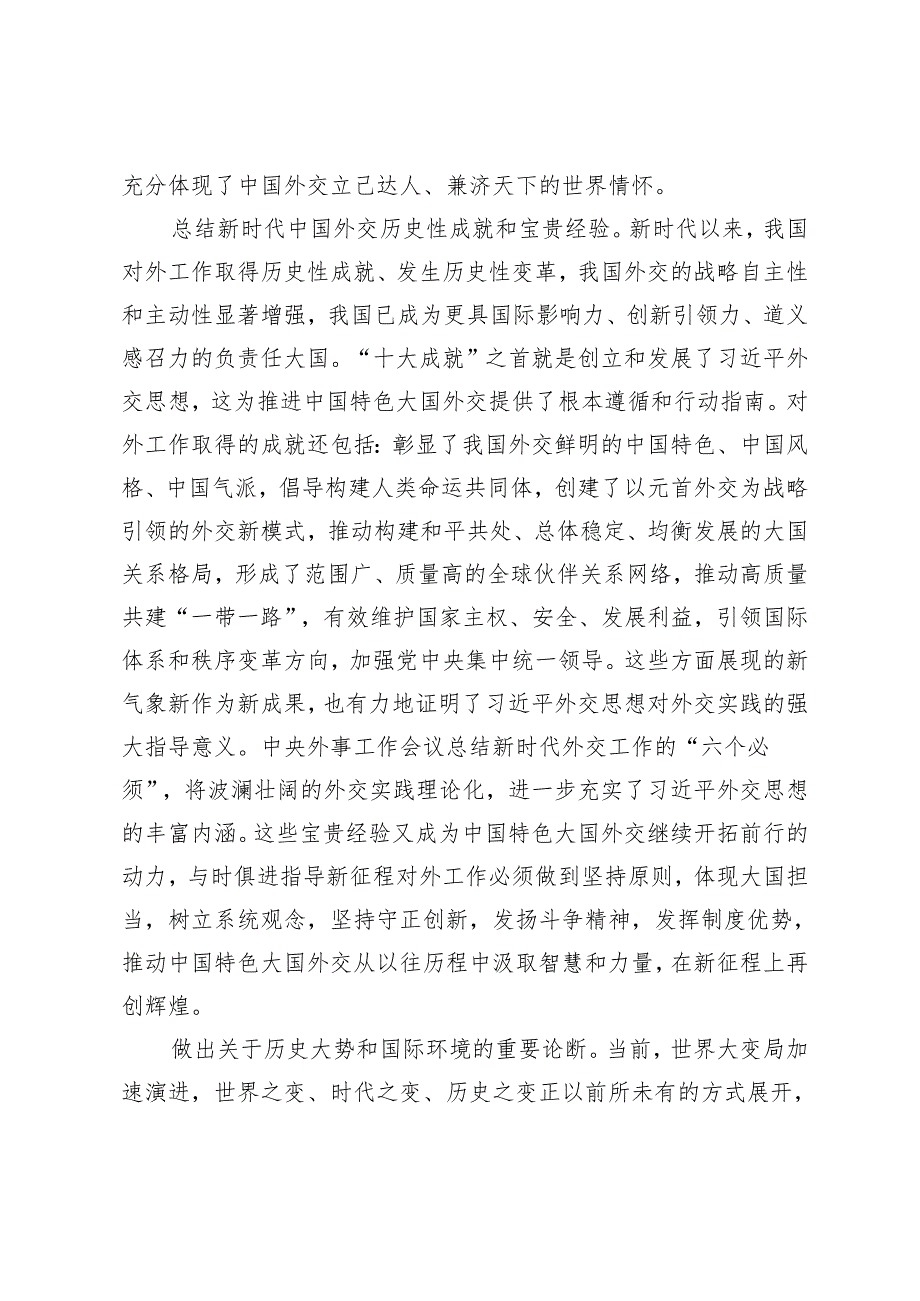 充分体现了中国外交立己达人、兼济天下的世界情怀。
总结新时代中国外交历史性成就和宝贵经验。新时代以来，我国
对外工作取得历史性成就、发生历史性变革，我国外交的战略自主性
和主动性显著增强，我国已成为更具国际影响力、创新引领力、道义
感召力的负责任大国。“十大成就”之首就是创立和发展了习近平外
交思想，这为推进中国特色大国外交提供了根本遵循和行动指南。对
外工作取得的成就还包括：彰显了我国外交鲜明的中国特色、中国风
格、中国气派，倡导构建人类命运共同体，创建了以元首外交为战略
引领的外交新模式，推动构建和平共处、总体稳定、均衡发展的大国
关系格局，形成了范围广、质量高的全球伙伴关系网络，推动高质量
共建“一带一路”，有效维护国家主权、安全、发展利益，引领国际
体系和秩序变革方向，加强党中央集中统一领导。这些方面展现的新
气象新作为新成果，也有力地证明了习近平外交思想对外交实践的强
大指导意义。中央外事工作会议总结新时代外交工作的“六个必
须”，将波澜壮阔的外交实践理论化，进一步充实了习近平外交思想
的丰富内涵。这些宝贵经验又成为中国特色大国外交继续开拓前行的
动力，与时俱进指导新征程对外工作必须做到坚持原则，体现大国担
当，树立系统观念，坚持守正创新，发扬斗争精神，发挥制度优势，
推动中国特色大国外交从以往历程中汲取智慧和力量，在新征程上再
创辉煌。
做出关于历史大势和国际环境的重要论断。当前，世界大变局加
速演进，世界之变、时代之变、历史之变正以前所未有的方式展开，